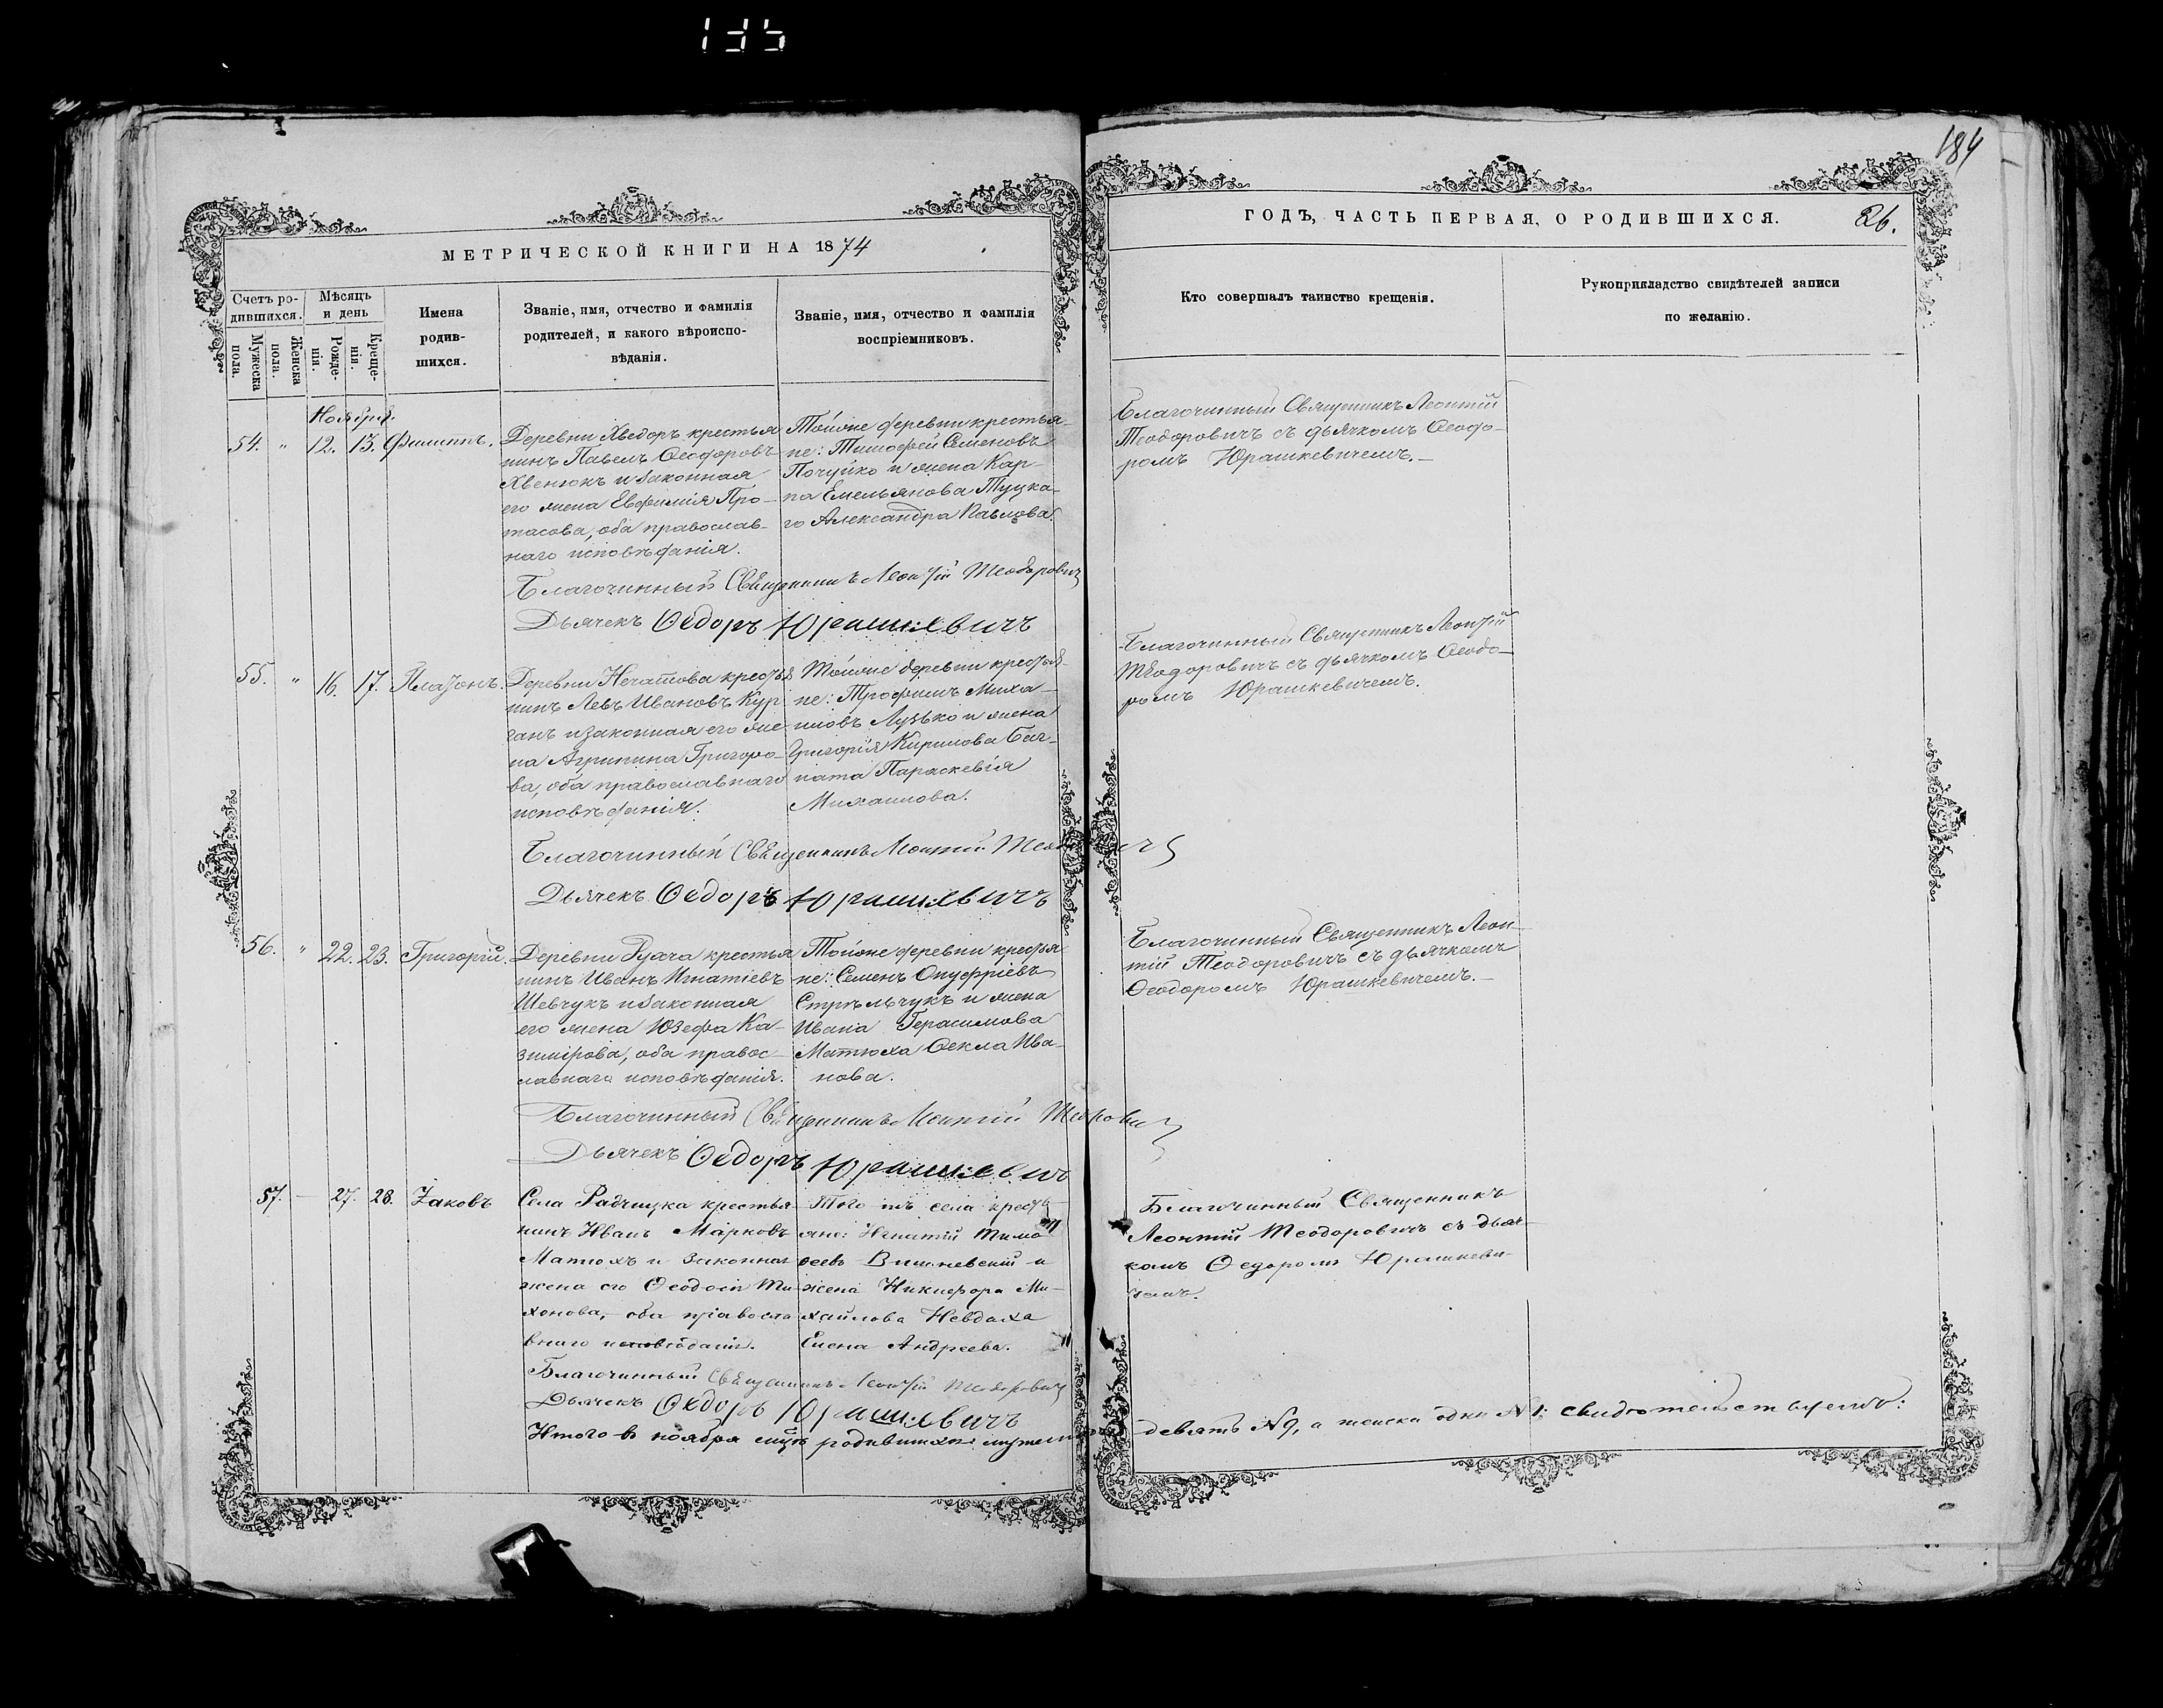 135
184
МЕТРИЧЕСКОЙ КНИГИ НА 1874
ГОДЪ, ЧАСТЬ ПЕРВАЯ, О РОДИВШИХСЯ.
26.
Счетъ ро-
дившихся.
Мужеска пола.
Женска пола.
Мѣсяцъ
и день
Рожде-
нія.
Креще-
нія.
Имена
родив-
шихся.
Званіе, имя, отчество и фамилія
родителей, и какого вѣроиспо-
вѣданія.
Званіе, имя, отчество и фамилія
воспріемниковъ.
Кто совершалъ таинство крещенія.
Рукоприкладство свидѣтелей записи
по желанію.
Ноября
54. " 12. 13. Филиппъ.
Деревни Хведоръ крестья
нинъ Павелъ Ѳеодоровъ
Хвенюкъ и законная
его жена Евфимія Про-
тасова, оба православ-
наго исповѣданія.
Тойже деревни крестья-
не: Тимофей Семеновъ
Почуйко и жена Кар-
па Емельянова Туцка-
го Александра Павлова.
Благочинный Священникъ Леонтій
Теодоровичъ съ дьячкомъ Ѳеодо-
ромъ Юрашкевичемъ.-
Благочинный Священникъ Леонтій Теодоровичъ
Дьячекъ Ѳедоръ Юрашкевичъ
55. " 16. 17. Платонъ.
Деревни Нечатова крестья
нинъ Левъ Ивановъ Кур
ганъ и законная его же
на Агрипина Григоро-
ва, оба православнаго
исповѣданія.
Тойже деревни крестья-
не: Трофимъ Миха-
иловъ Лузько и жена
Григорія Кирилова Баг-
ната Параскевія
Михаилова.
Благочинный Священникъ Леонтій
Теодоровичъ съ дьячкомъ Ѳеодо-
ромъ Юрашкевичемъ.
Благочинный Священникъ Леонтій Теодоровичъ
Дьячекъ Ѳедоръ Юрашкевичъ
56. " 22. 23. Григорій.
Деревни Рухча крестья
нинъ Иванъ Игнатіевъ
Шевчукъ и законная
его жена Юзефа Ка-
зимірова, оба правос-
лавнаго исповѣданія.
Тойже деревни крестья
не: Семенъ Онуфріевъ
Стрѣльчукъ и жена
Ивана Герасимова
Матюха Ѳекла Ива-
нова.
Благочинный Священникъ Леон-
тій Теодоровичъ съ дьячкомъ
Ѳеодоромъ Юрашкевичемъ.-
Благочинный Священникъ Леонтій Теодоровичъ
Дьячекъ Ѳедоръ Юрашкевичъ
57. - 27. 28. Іаковъ
Села Радчицка крестья
нинъ Иванъ Марковъ
Матюхъ и законная
жена его Ѳеодосія Ти-
хонова, оба правосла
внаго исповѣданія.
Того жъ села кресть
яне: Игнатій Тимо
ѳеевъ Вишневскій и
жена Никифора Ми-
хайлова Невдаха
Елена Андреева.
Благочинный Священникъ
Леонтій Теодоровичъ съ дьяч-
комъ Ѳедоромъ Юрашкеви-
чемъ.
Благочинный Священникъ Леонтій Теодоровичъ
Дьячекъ Ѳедоръ Юрашкевичъ
Итого въ ноябрѣ мцѣ родившихся мужеска девять №9, а женска одна №1; свидѣтельствуемъ: